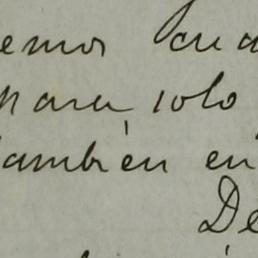 emos cua
para, solo
también en
De